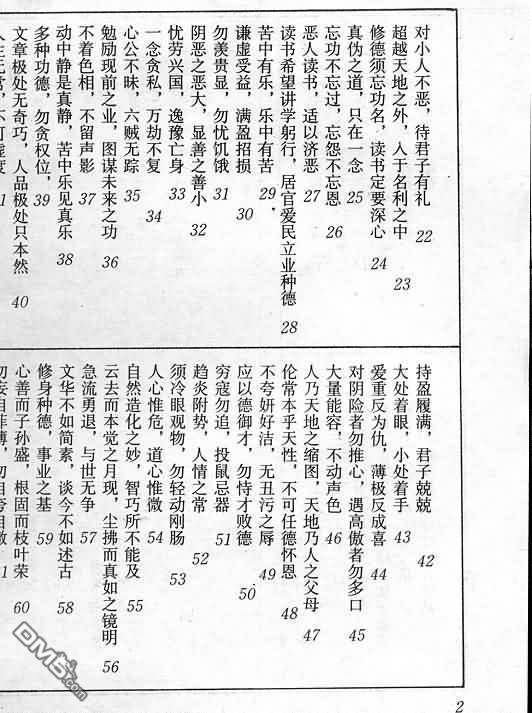 对小人不恶，待君子有礼 22
超越天地之外，入于名利之中 23
修德须忘功名，读书定要深心 24
真伪之道，只在一念 25
忘功不忘过，忘怨不忘恩 26
恶人读书，适以济恶 27
读书希望讲学躬行，居官爱民立业种德 28
苦中有乐，乐中有苦 29
谦虚受益，满盈招损 30
勿羡贵显，勿忧饥饿 31
阴恶之恶大，显善之善小 32
忧劳兴国，逸豫亡身 33
一念贪私，万劫不复 34
心公不昧，六贼无踪 35
勉励现前之业，图谋未来之功 36
不着色相，不留声影 37
动中静是真静，苦中乐见真乐 38
多种功德，勿贪权位， 39
文章极处无奇巧，人品极处只本然 40
持盈履满，君子兢兢 42
大处着眼，小处着手 43
爱重反为仇，薄极反成喜 44
对阴险者勿推心，遇高傲者勿多口 45
大量能容，不动声色 46
人乃天地之缩图，天地乃人之父母 47
伦常本乎天性，不可任德怀恩 48
不夸妍好洁，无丑污之辱 49
应以德御才，勿恃才败德 50
穷寇勿追，投鼠忌器 51
趋炎附势，人情之常 52
须冷眼观物，勿轻动刚肠 53
人心惟危，道心惟微 54
自然造化之妙，智巧所不能及 55
云去而本觉之月现，尘拂而真如之镜明 56
急流勇退，与世无争 57
文华不如简素，谈今不如述古 58
修身种德，事业之基 59
心善而子孙盛，根固而枝叶荣 60
2